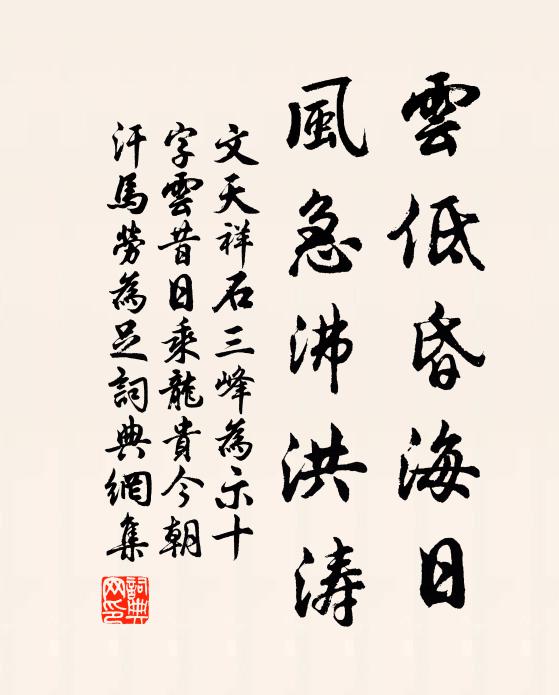 雲低昏海日
風急沸洪涛
文天祥石三峰為示十
字雲昔日乘龍貴今朝
汗馬勞為足詞典網集
詞典網印